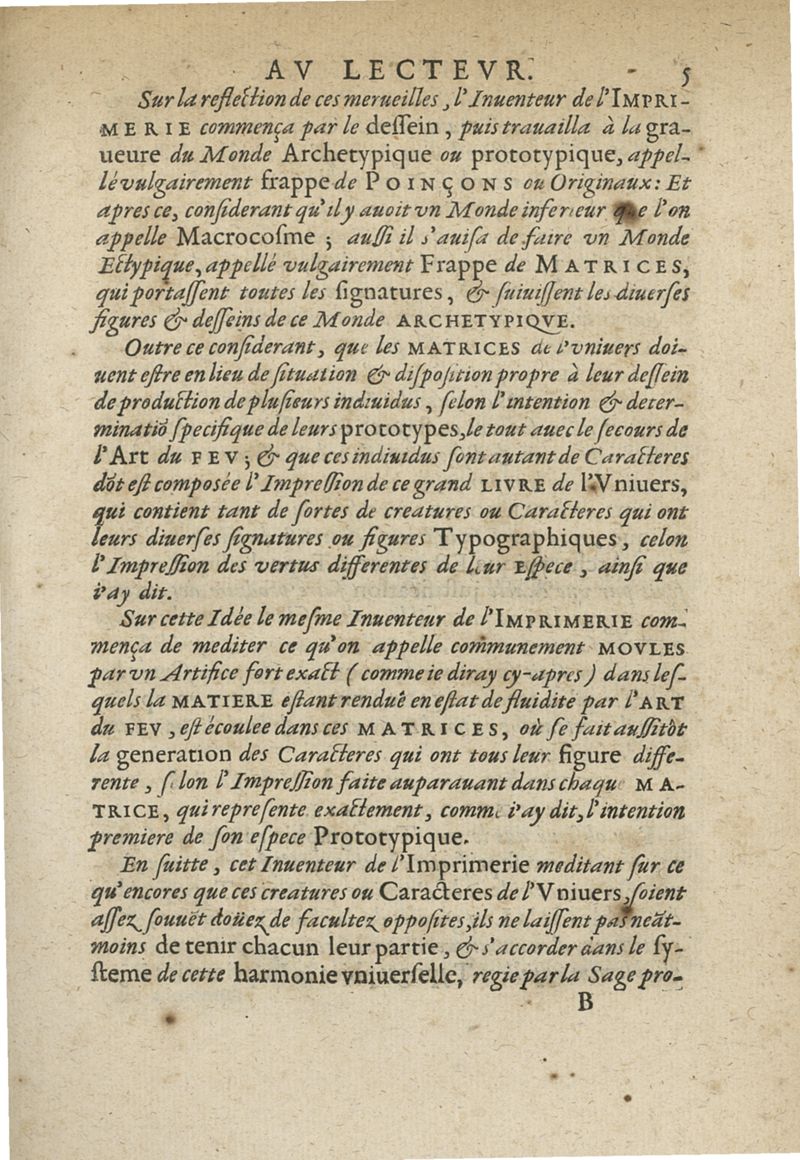 AV LECTEVR. 5
Sur la reflection de ces merueilles, l'Inuenteur de l'IMPRI-
MERIE commença par le deſſein, puis trauailla à la gra-
ueure du Monde Archetypique ou prototypique, appel-
lé vulgairement frappe de POINÇONS ou Originaux: Et
apres ce, conſiderant qu'il y auoit vn Monde inferieur que l'on
appelle Macrocoſme; auſſi il s'auiſa de faire vn Monde
Ectypique, appellé vulgairement Frappe de MATRICES,
qui portaſſent toutes les ſignatures, & ſuiuiſſent les diuerſes
figures & deſſeins de ce Monde ARCHETYPIQVE.
Outre ce conſiderant, que les MATRICES de l'vniuers doi-
uent eſtre en lieu de ſituation & diſpoſition propre à leur deſſein
de production de pluſieurs indiuidus, ſelon l'intention & deter-
minatiõ ſpecifique de leurs prototypes, le tout auec le ſecours de
l'Art du FEV; & que ces indiuidus ſont autant de Caracteres
dõt eſt composée l'Impreſſion de ce grand LIVRE de l'Vniuers,
qui contient tant de ſortes de creatures ou Caracteres qui ont
leurs diuerſes ſignatures ou figures Typographiques, celon
l'Impreſſion des vertus differentes de leur Eſpece, ainſi que
i'ay dit.
Sur cette Idée le meſme Inuenteur de l'IMPRIMERIE com-
mença de mediter ce qu'on appelle communement MOVLES
par vn Artifice fort exact (comme ie diray cy-apres) dans leſ-
quels la MATIERE eſtant renduë en eſtat de fluidite par l'ART
du FEV, eſt écoulee dans ces MATRICES, où ſe fait auſſitôt
la generation des Caracteres qui ont tous leur figure diffe-
rente, ſelon l'Impreſſion faite auparauant dans chaque MA-
TRICE, qui repreſente exactement, comme i'ay dit, l'intention
premiere de ſon eſpece Prototypique.
En ſuitte, cet Inuenteur de l'Imprimerie meditant ſur ce
qu'encores que ces creatures ou Caracteres de l'Vniuers, ſoient
aſſez ſouuẽt doüez de facultez oppoſites, ils ne laiſſent pas neãt-
moins de tenir chacun leur partie, & s'accorder dans le ſy-
ſteme de cette harmonie vniuerſelle, regie par la Sage pro-
B